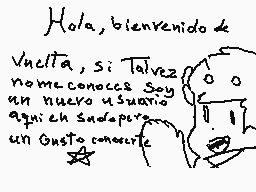 Hola, bienvenido de
vuelta, si Talvez
no me conoces soy
un nuevo usuario
aqui en sudopero
un Gusto conocerte